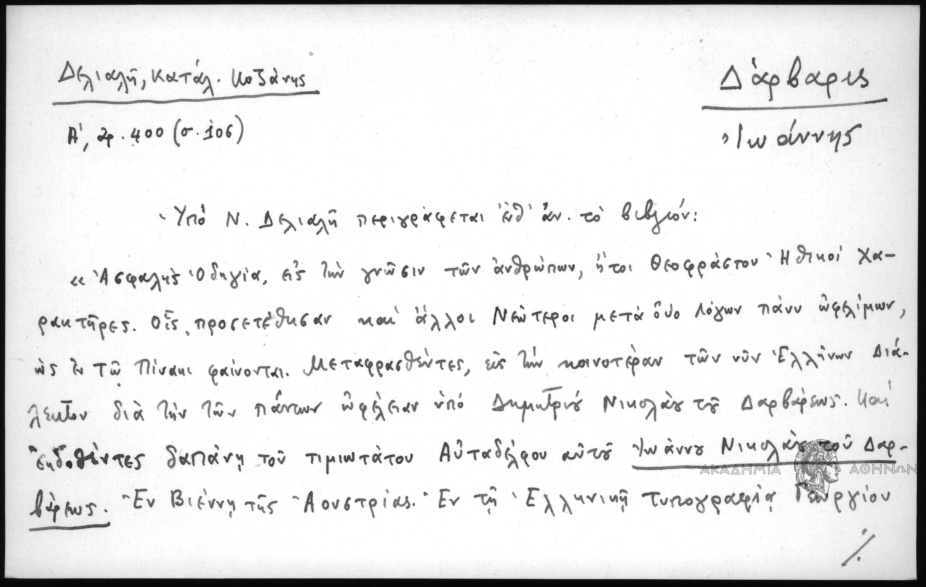 Δελιαλῆ, Κατάλ. Κοζάνης
Δάρβαρις
Α', ἀρ. 400 (σ. 106)
Ἰωάννης
Ὑπὸ Ν. Δελιαλῆ περιγράφεται ἐνθ' ἀν. τὸ βιβλίον:
« Ἀσφαλὴς Ὁδηγία, εἰς τὴν γνῶσιν τῶν ἀνθρώπων, ἤτοι Θεοφράστου Ἠθικοὶ Χα-
ρακτῆρες. Οἷς προσετέθησαν καὶ ἄλλοι Νεώτεροι μετὰ δύο Λόγων πάνυ ὠφελίμων,
ὡς ἐν τῷ Πίνακι φαίνονται. Μεταφρασθέντες, εἰς τὴν κοινοτέραν τῶν νῦν Ἑλλήνων Διά-
λεκτον διὰ τὴν τῶν πάντων ὠφέλειαν ὑπὸ Δημητρίου Νικολάου τοῦ Δαρβάρεως. Καὶ
ἐκδοθέντες δαπάνῃ τοῦ τιμιωτάτου Αὐταδέλφου αὐτοῦ Ἰωάννου Νικολάου τοῦ Δαρ-
βάρεως. Ἐν Βιέννῃ τῆς Ἀουστρίας. Ἐν τῇ Ἑλληνικῇ τυπογραφίᾳ Γεωργίου
ΑΚΑΔΗΜΙΑ ΑΘΗΝΩΝ
./.